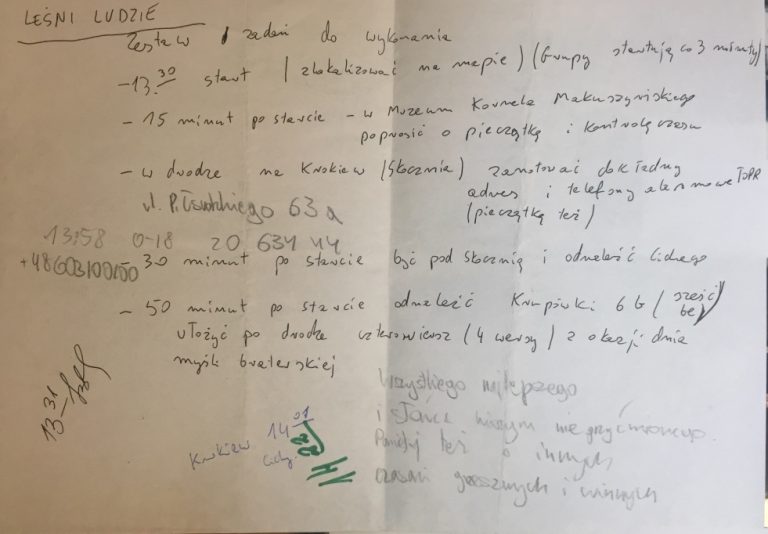 LEŚNI LUDZIE
Zestaw zadań do wykonania
- 13.30 start (zlokalizować na mapie) (Grupy startują co 3 minuty)
- 15 minut po starcie - w Muzeum Kornela Makuszyńskiego
poprosić o pieczątkę i kontrolę czasu
- w drodze na Krokiew (Skocznia) zanotować dokładny
adres i telefony alarmowe TOPR
(pieczątkę też)
ul. Piłsudskiego 63a
13:58 0-18 20 634 44
+48 603100100
30 minut po starcie być pod skocznią i odnaleźć Cichego
- 50 minut po starcie odnaleźć Krupówki 6b (sześć be)
ułożyć po drodze czterowiersz (4 wersy) z okazji dnia
myśli braterskiej
Wszystkiego najlepszego
i słońca niczym nie przyćmionego.
Pamiętaj też o innych
czasach groszowych i
13 31
Krokiew 14 01
Cichy
14 22